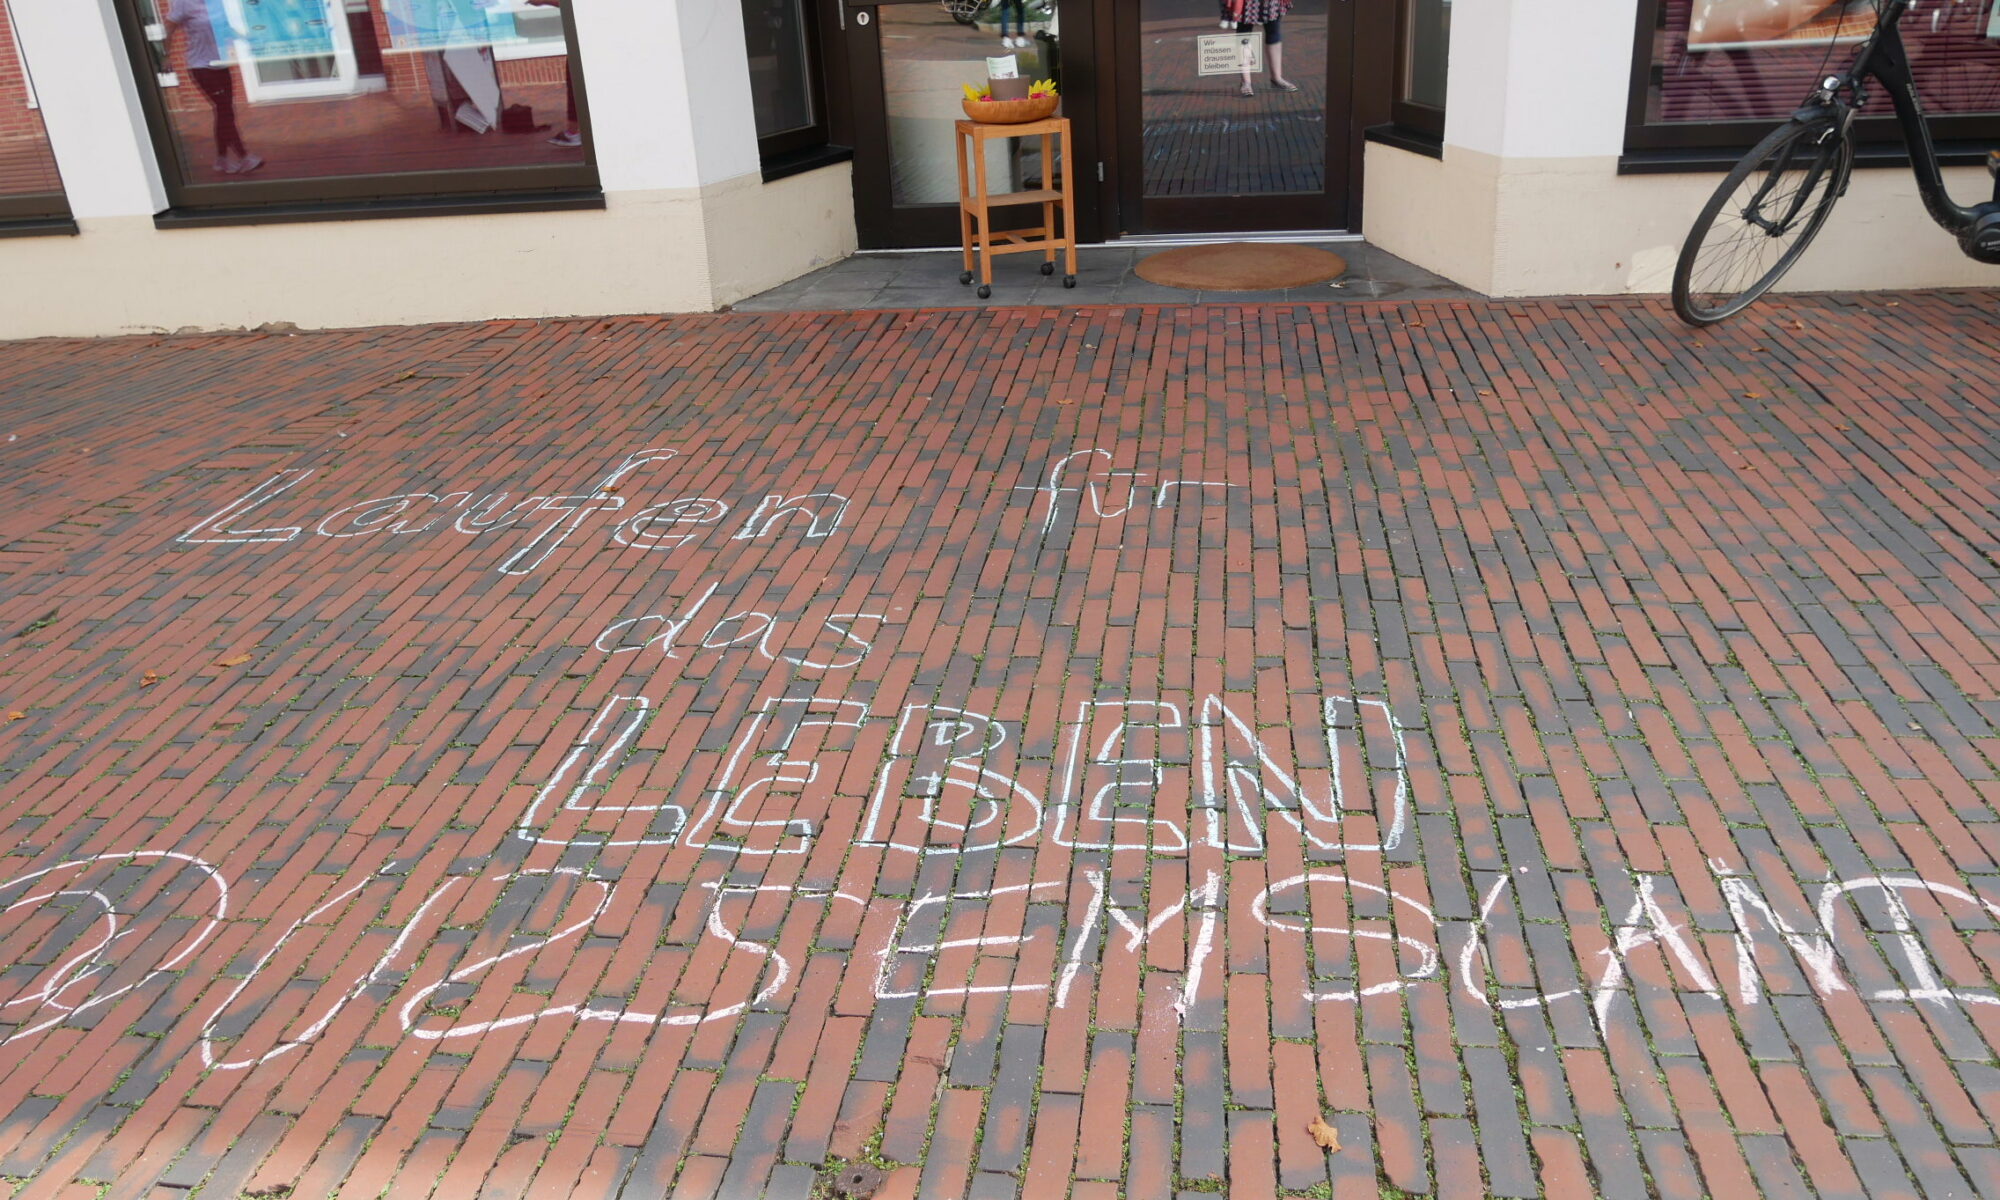 Wir
müssen
draussen
bleiben
Laufen für
das
LEBEN
@UZSEMSLAND